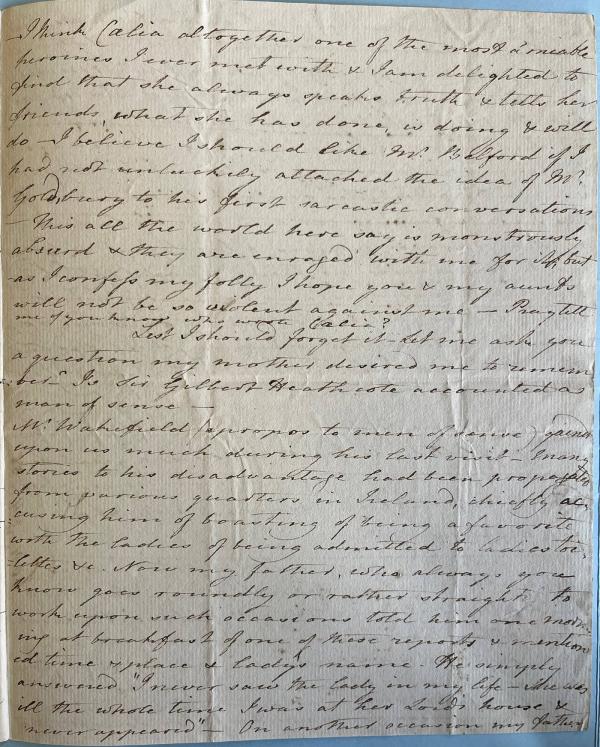 - I think Cælia altogether one of the most amiable
heroines I ever met with & I am delighted to
find that she always speaks truth & tells her
friends, what she has done, is doing & will
do - I believe I should like Mr. Belford if I
had not unluckily attached the idea of Mr.
Goldsbury to his first sarcastic conversations
- This all the world here say is monstrously
absurd & they are enraged with me for it, but
as I confess my folly I hope you & my aunts
will not be so violent against me - Pray tell
me if you know who wrote Cælia?
Lest I should forget it - Let me ask you
a question my mother desired me to remem
ber - Is Sir Gilbert Heathcote accounted a
man of sense -
Mr. Wakefield (apropos to men of sense) gained
upon us much during his last visit - Many
stories to his disadvantage had been propagated
from various quarters in Ireland, chiefly ac
cusing him of boasting of being a favorite
with the ladies of being admitted to ladies toi-
-lettes &c. Now my father, who always you
know goes roundly or rather straight to
work upon such occasions told him one morn
ing at breakfast of one of these reports & mention
ed time & place & lady's name. He simply
answered "I never saw the lady in my life - she was
ill the whole time I was at her Lords house &
never appeared" - On another occasion my father